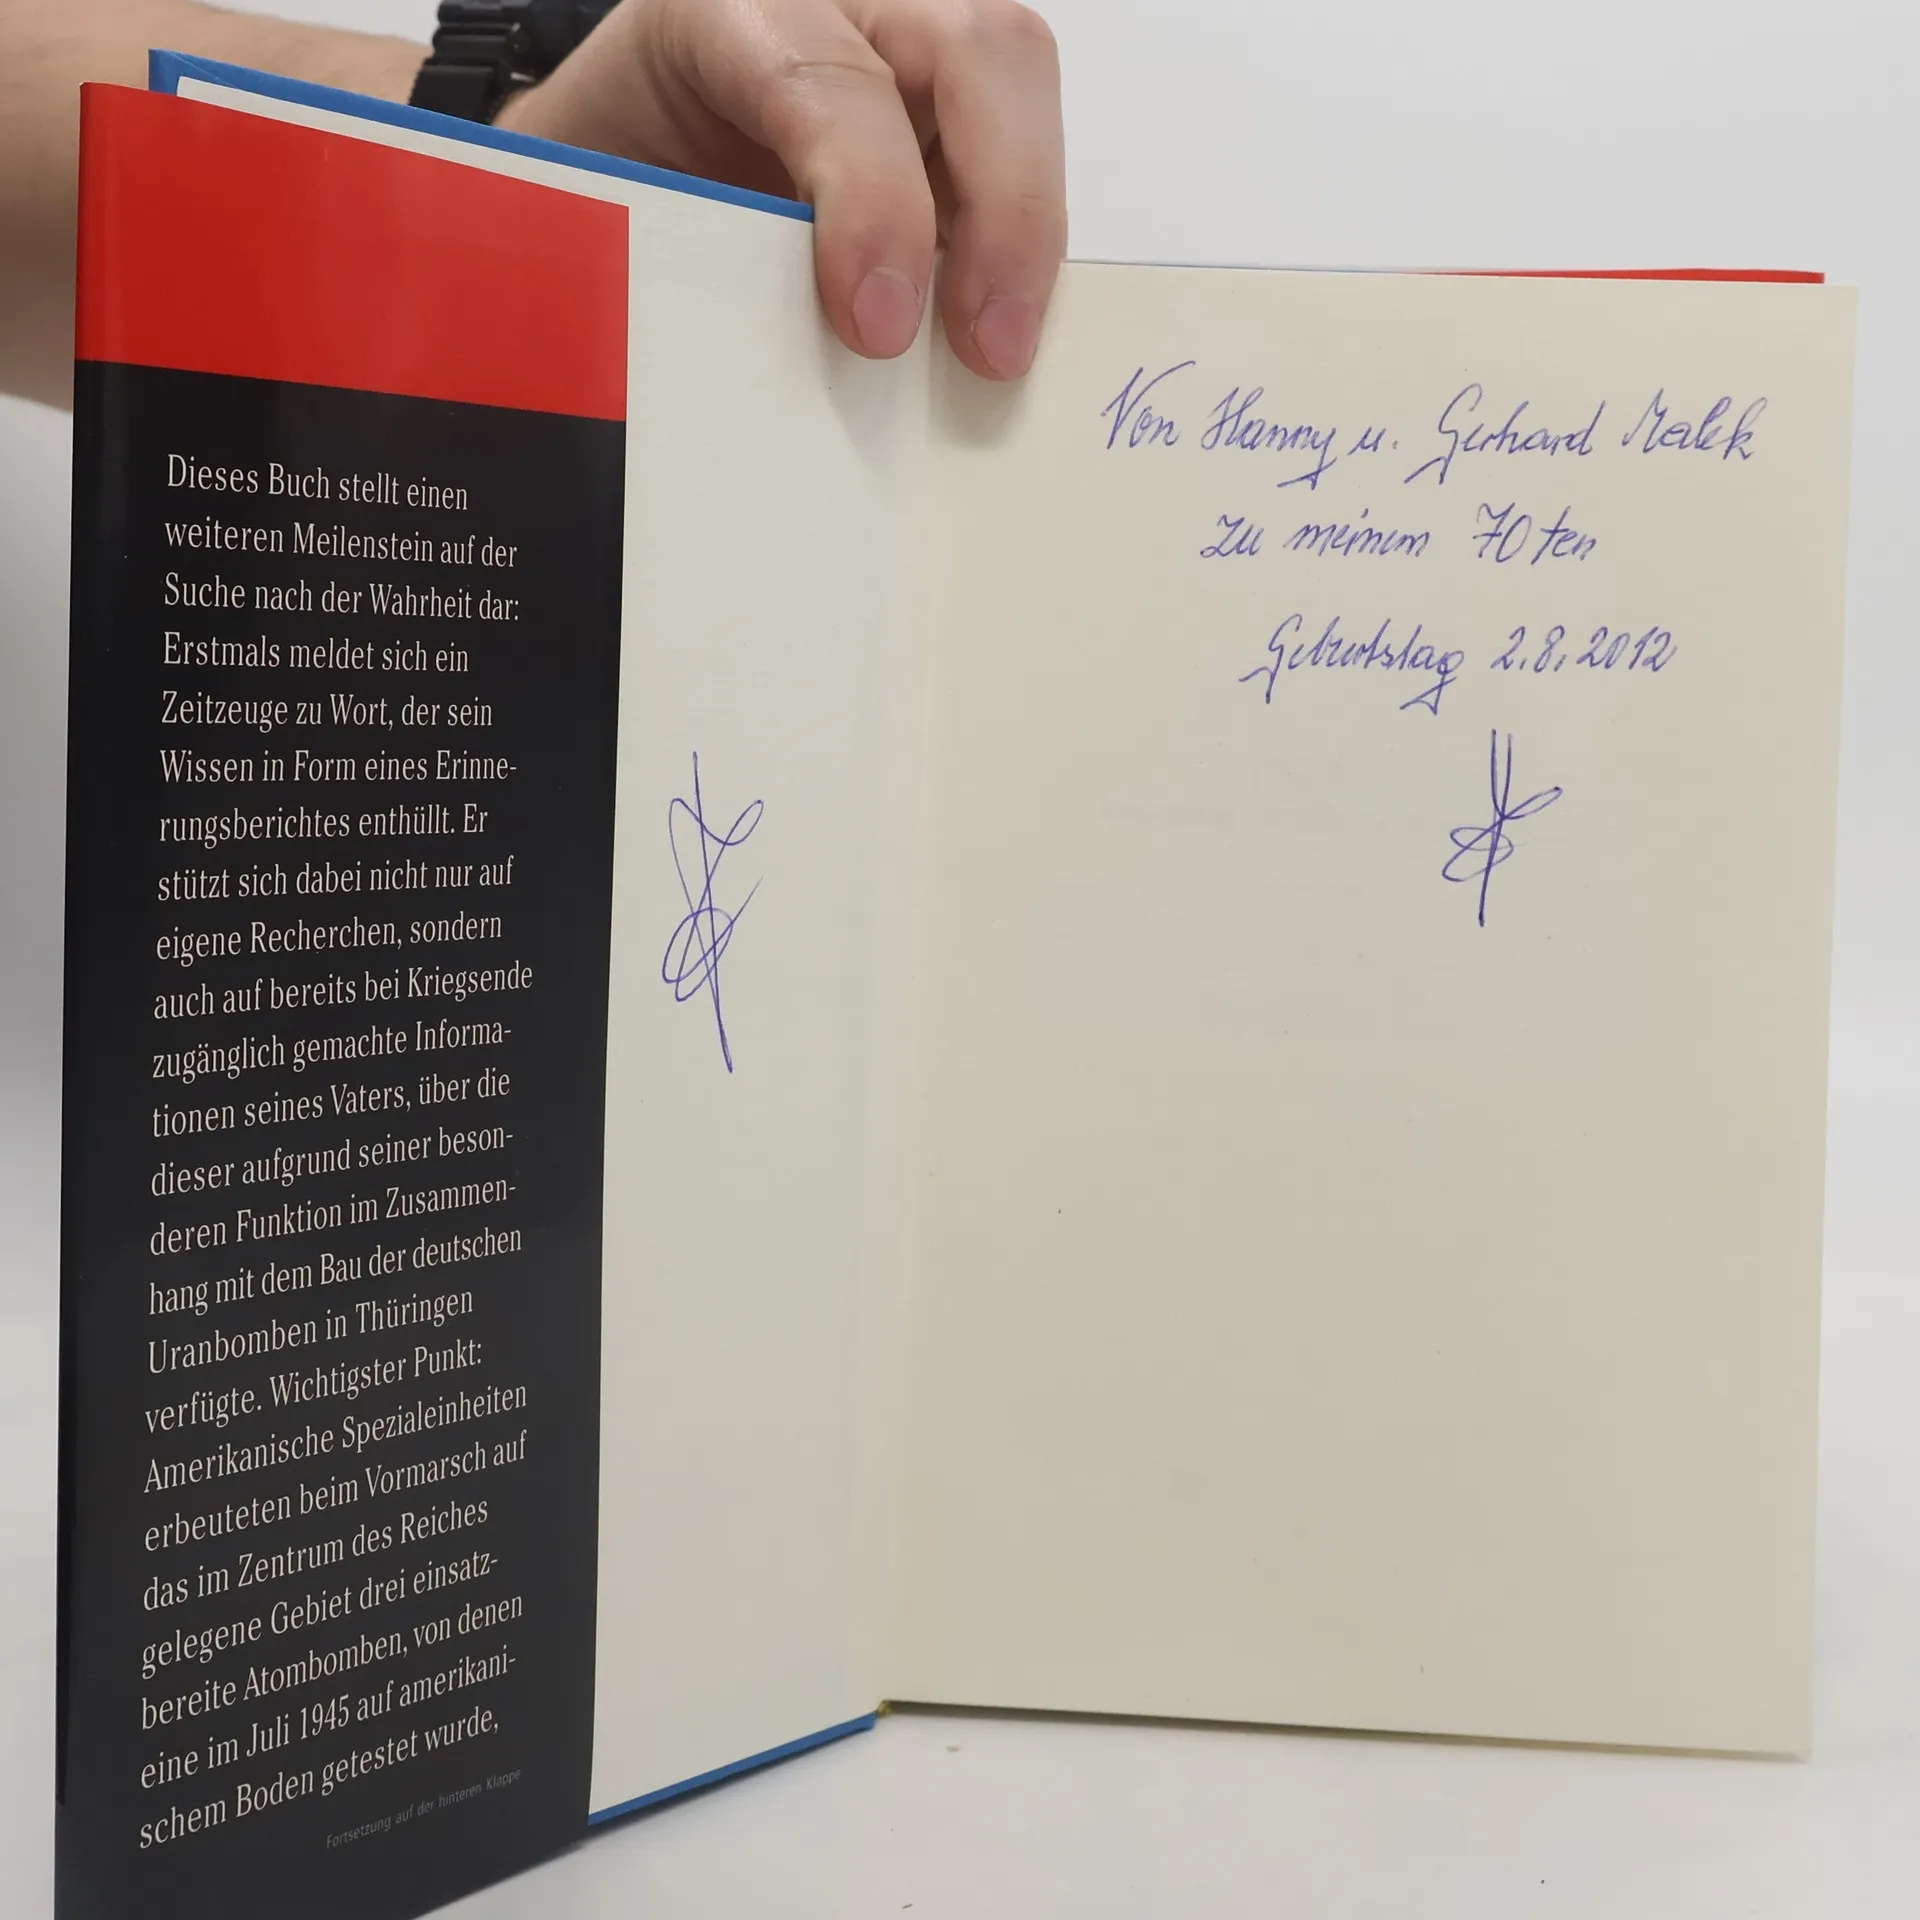 Dieses Buch stellt einen
weiteren Meilenstein auf der
Suche nach der Wahrheit dar:
Erstmals meldet sich ein
Zeitzeuge zu Wort, der sein
Wissen in Form eines Erinne-
rungsberichtes enthüllt. Er
stützt sich dabei nicht nur auf
eigene Recherchen, sondern
auch auf bereits bei Kriegsende
zugänglich gemachte Informa-
tionen seines Vaters, über die
dieser aufgrund seiner beson-
deren Funktion im Zusammen-
hang mit dem Bau der deutschen
Uranbomben in Thüringen
verfügte. Wichtigster Punkt:
Amerikanische Spezialeinheiten
erbeuteten beim Vormarsch auf
das im Zentrum des Reiches
gelegene Gebiet drei einsatz-
bereite Atombomben, von denen
eine im Juli 1945 auf amerikani-
schem Boden getestet wurde,
Fortsetzung auf der hinteren Klappe
Von Hanny u. Gerhard Malek
zu meinem 70ten
Geburtstag 2.8.2012